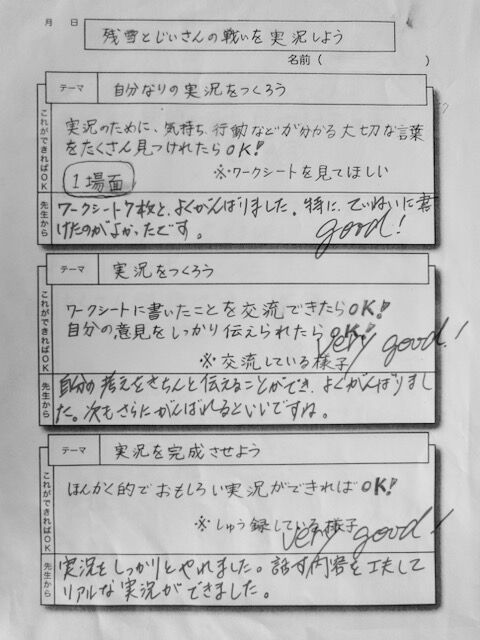 月 日
残雪とじいさんの戦いを実況しよう
名前( )
テーマ 自分なりの実況をつくろう
これができればOK
実況のために、気持ち、行動などが分かる大切な言葉
をたくさん見つけれたらOK!
※ワークシートを見てほしい
1場面
先生から
ワークシート7枚と、よくがんばりました。特に、ていねいに書
けたのがよかったです。
good!
テーマ 実況をつくろう
これができればOK
ワークシートに書いたことを交流できたらOK!
自分の意見をしっかり伝えられたらOK!
very good!
※交流している様子
先生から
自分の考えをきちんと伝えることができ、よくがんばりまし
た。次もさらにがんばれるといいですね。
テーマ 実況を完成させよう
これができればOK
ほんかく的でおもしろい実況ができればOK!
※しゅう録している様子
very good!
先生から
実況をしっかりとやれました。話す内容を工夫して
リアルな実況ができました。